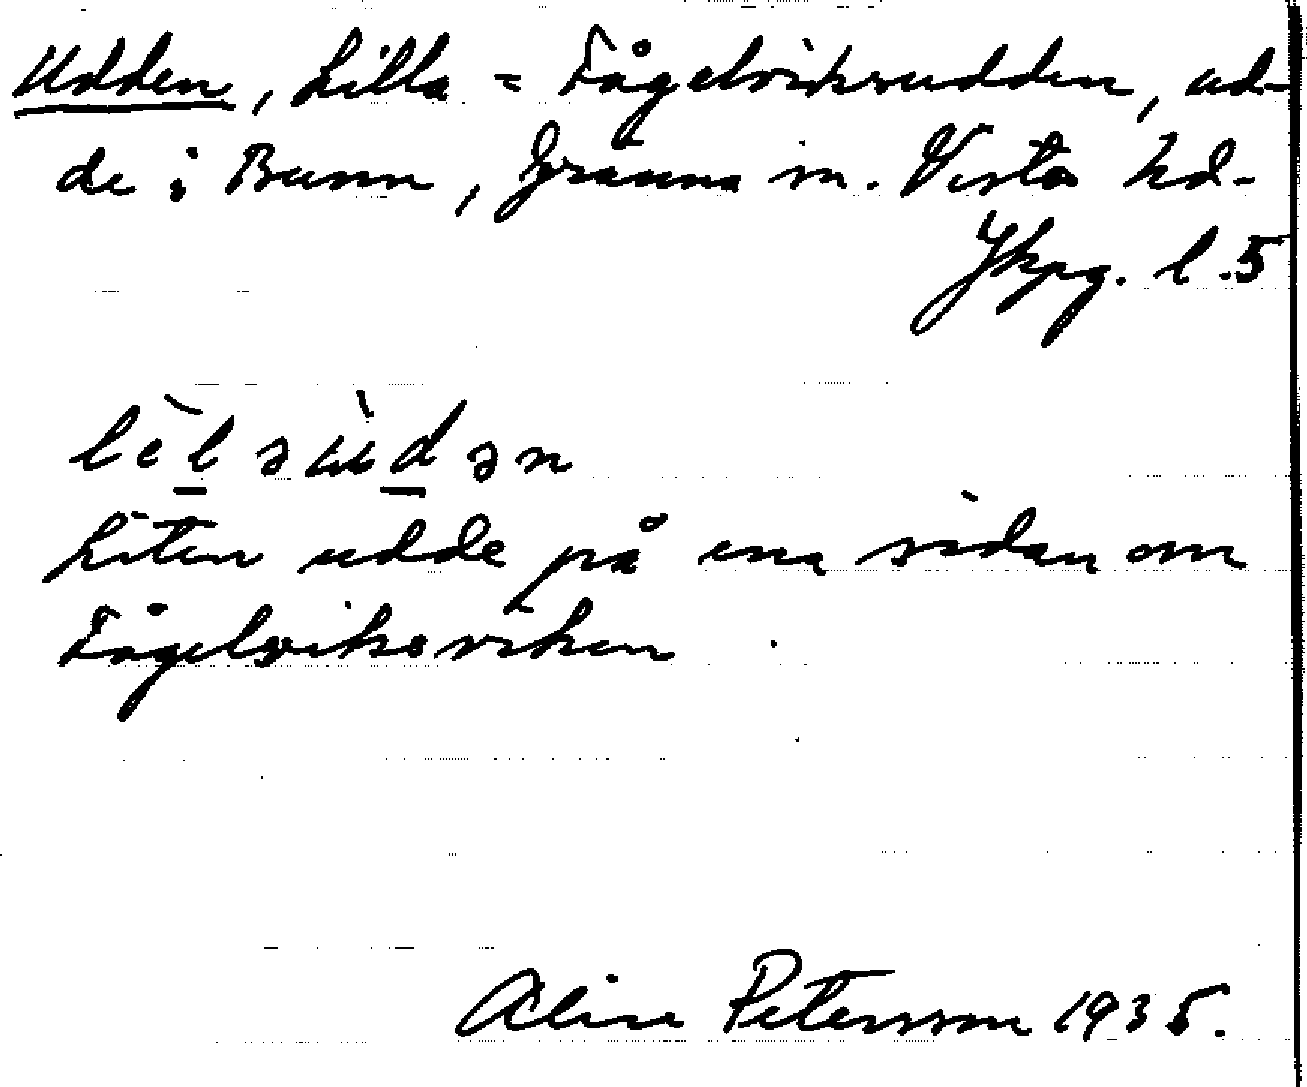 Udden, Lilla = Fågelviksudden, ud-
de i Bunn, Gränna sn. Vista hd.
Jkpg. l. 5
lèl əùdən
Liten udde på ena sidan om
Fågelviksviken
Aline Petersson 1935.